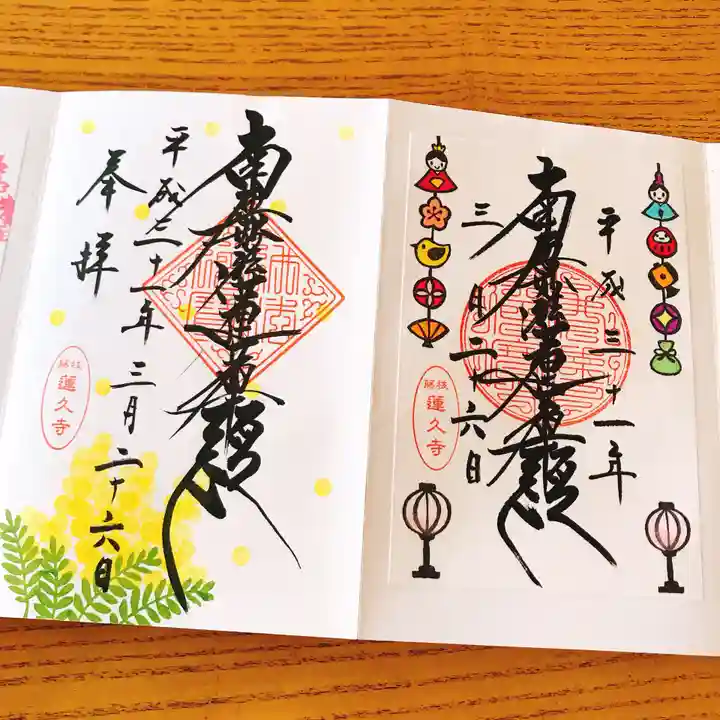 平成三十一年
南無妙法蓮華経
三月二十六日
藤枝
蓮久寺
南無妙法蓮華経
平成三十一年三月二十六日
奉拝
藤枝
蓮久寺